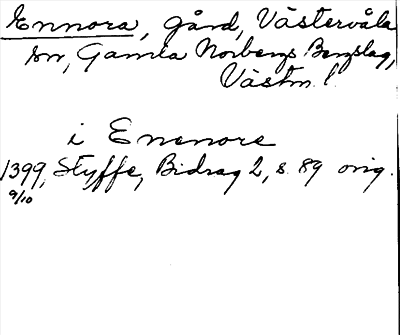 Ennora, gård, Västervåla
sn, Gamla Norbergs Bergslag,
Västm. l.
i Enenore
1399, Styffe, Bidrag 2, s. 89 orig.
9/10